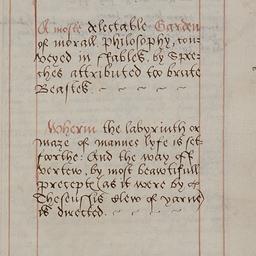 A moste delectable Garden
of morall philosophy, con-
veyed in fables, by Spee-
ches attributed to brute
Beastes.
Wherin the labyrinth or
maze of mannes lyfe is set
forthe: And the way off
vertew, by most beawtifull
precepte (as it were by
Theseussis clew of yarne)
is directed.